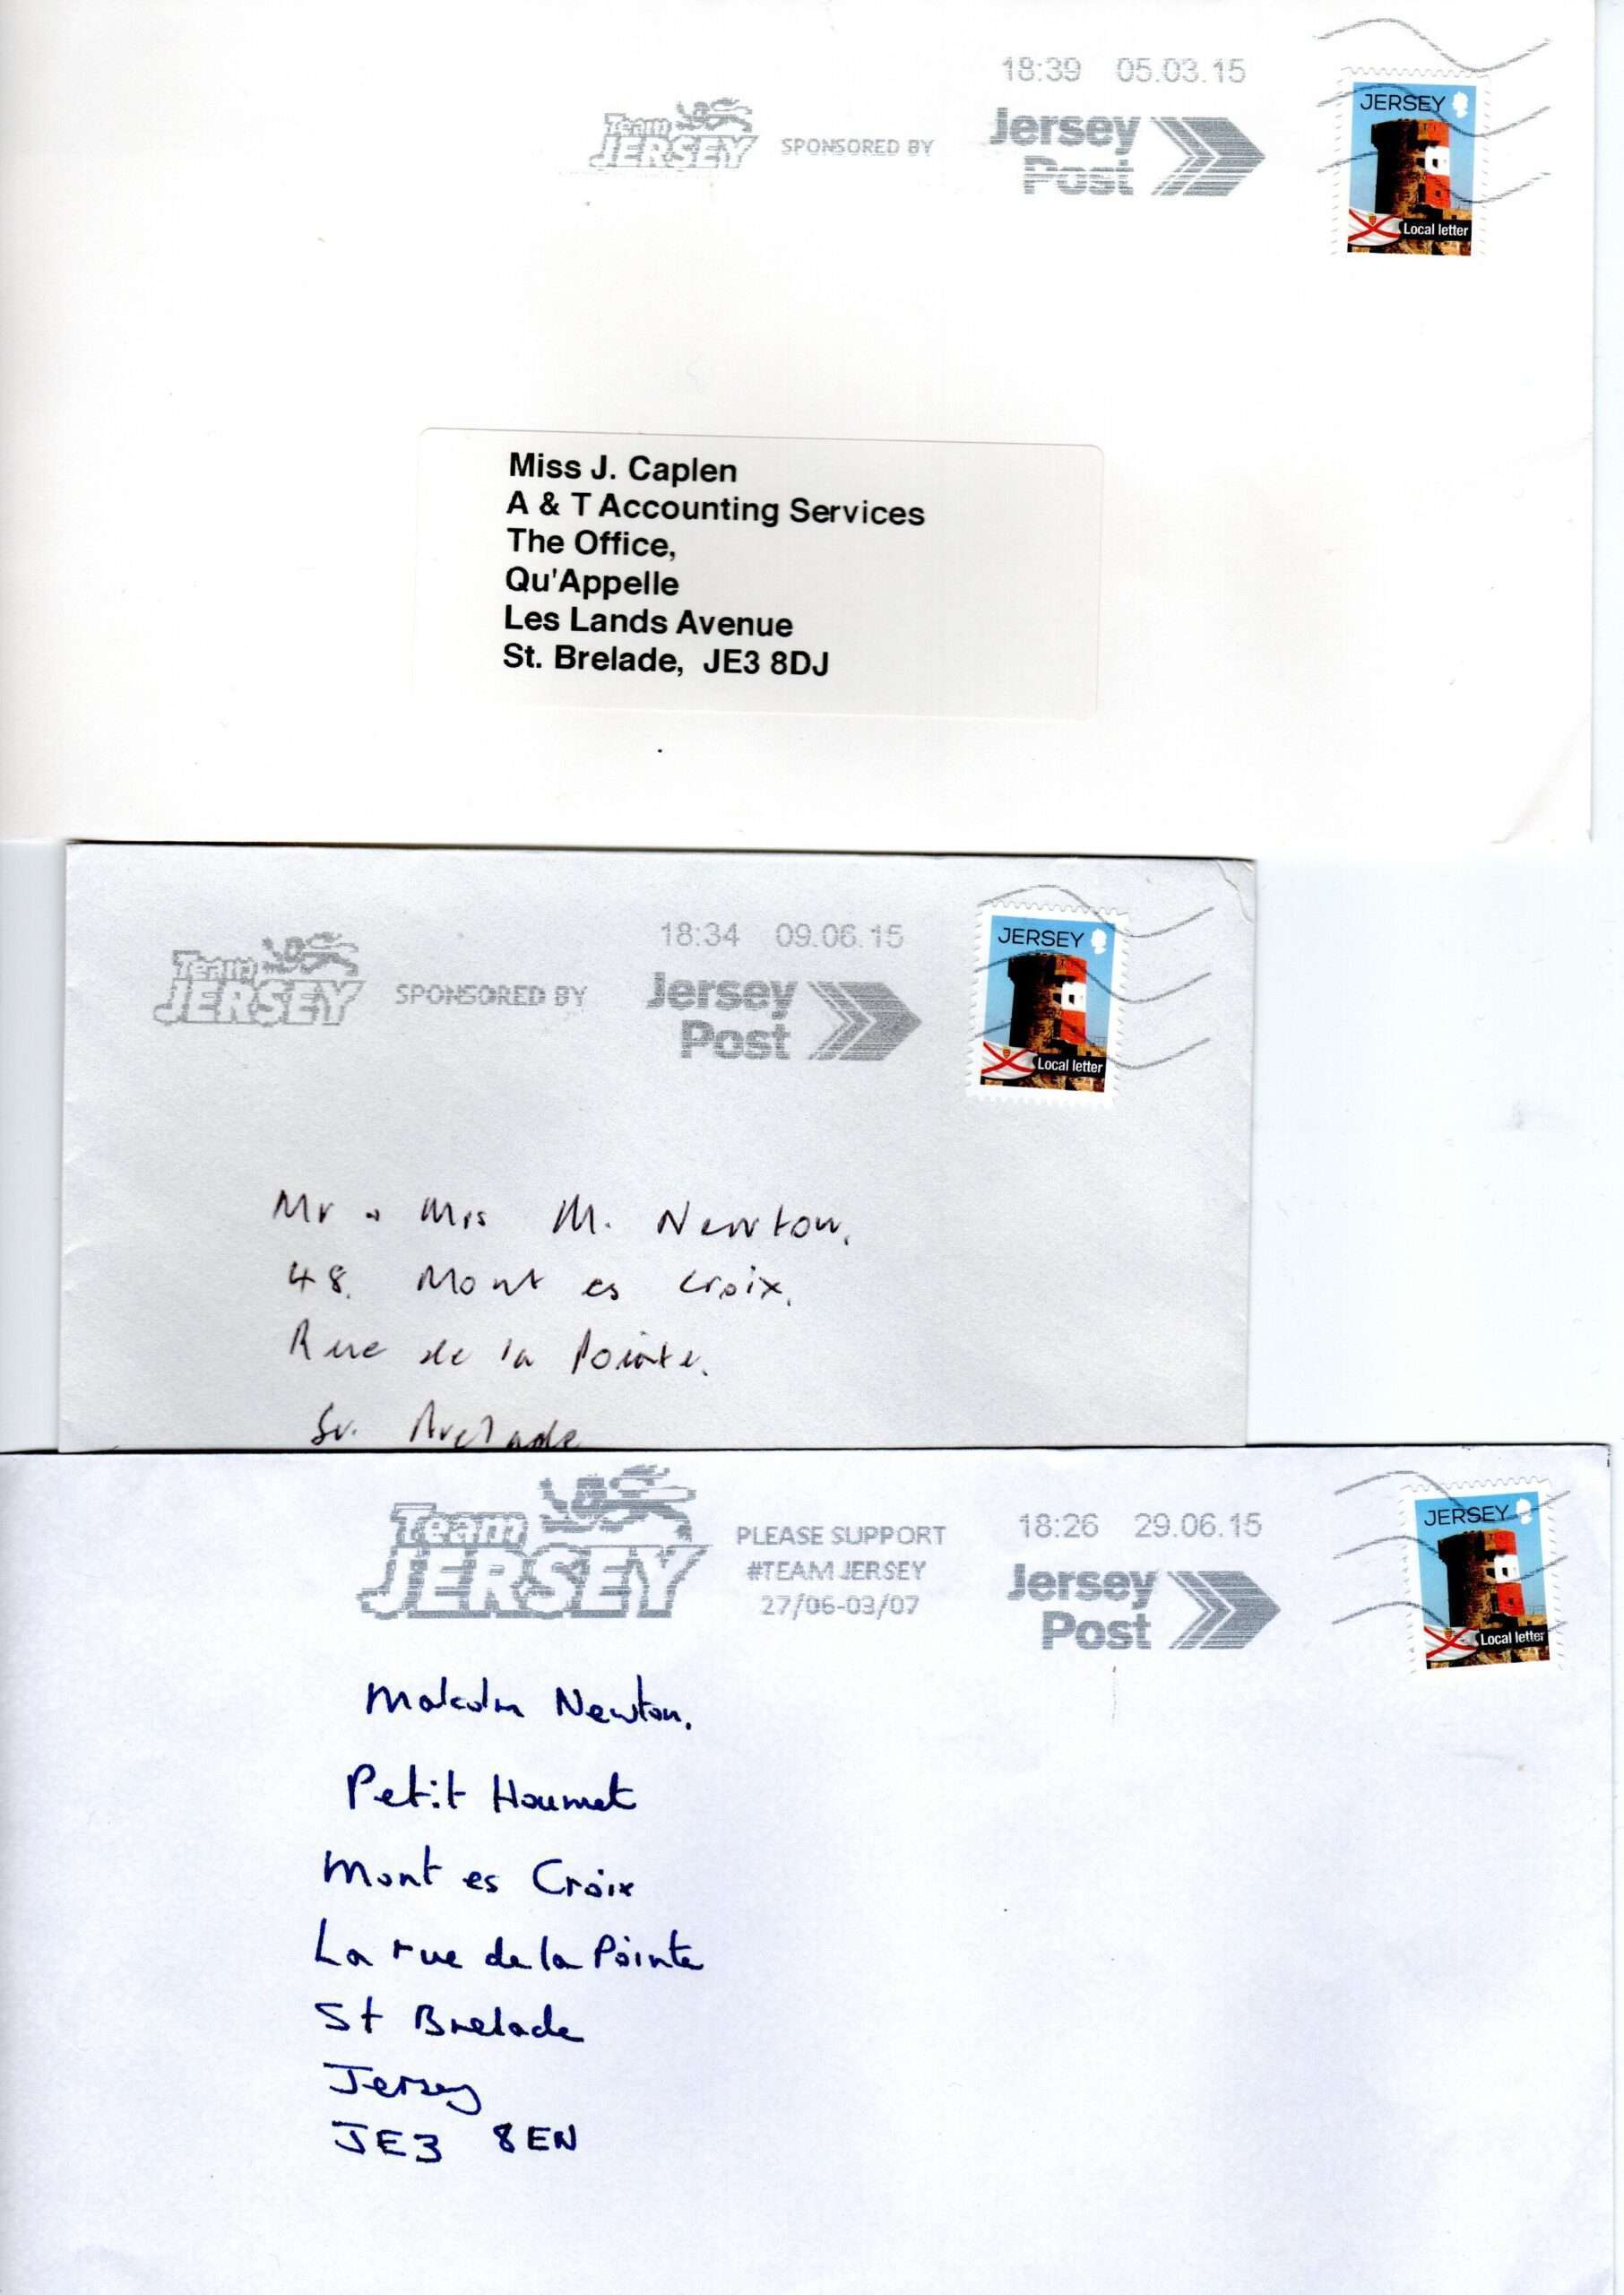 18:39 05.03.15
Team
JERSEY
SPONSORED BY
Jersey
Post
JERSEY
Local letter
Miss J. Caplen
A & T Accounting Services
The Office,
Qu'Appelle
Les Lands Avenue
St. Brelade, JE3 8DJ
18:34 09.06.15
Team
JERSEY
SPONSORED BY
Jersey
Post
JERSEY
Local letter
Mr & Mrs M. Newton,
48. Mont es Croix,
Rue de la Pointe.
St. Brelade
Team
JERSEY
PLEASE SUPPORT
#TEAM JERSEY
27/06-03/07
18:26 29.06.15
Jersey
Post
JERSEY
Local letter
Malcolm Newton.
Petit Houmet
Mont es Croix
La rue de la Pointe
St Brelade
Jersey
JE3 8EN